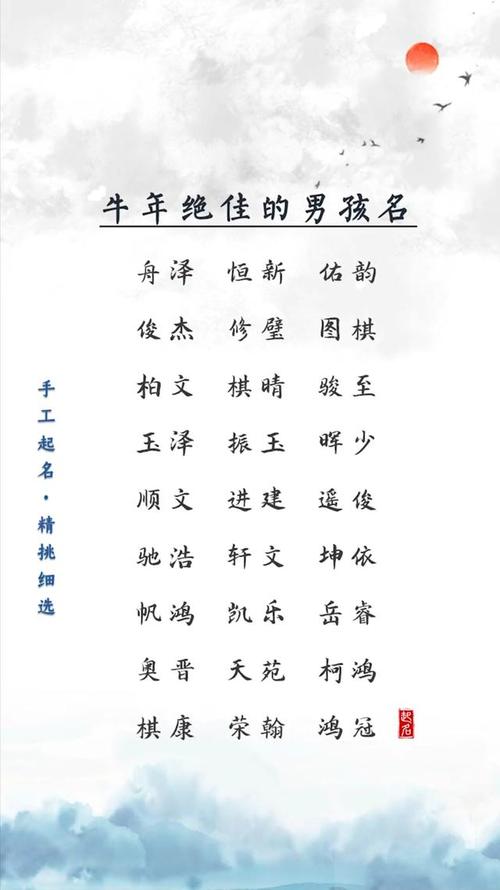 牛年绝佳的男孩名
舟泽 恒新 佑韵
俊杰 修璧 图棋
柏文 棋晴 骏至
玉泽 振玉 晖少
顺文 进建 遥俊
驰浩 轩文 坤依
帆鸿 凯乐 岳睿
奥晋 天苑 柯鸿
棋康 荣翰 鸿冠
起名
手工起名·精挑细选